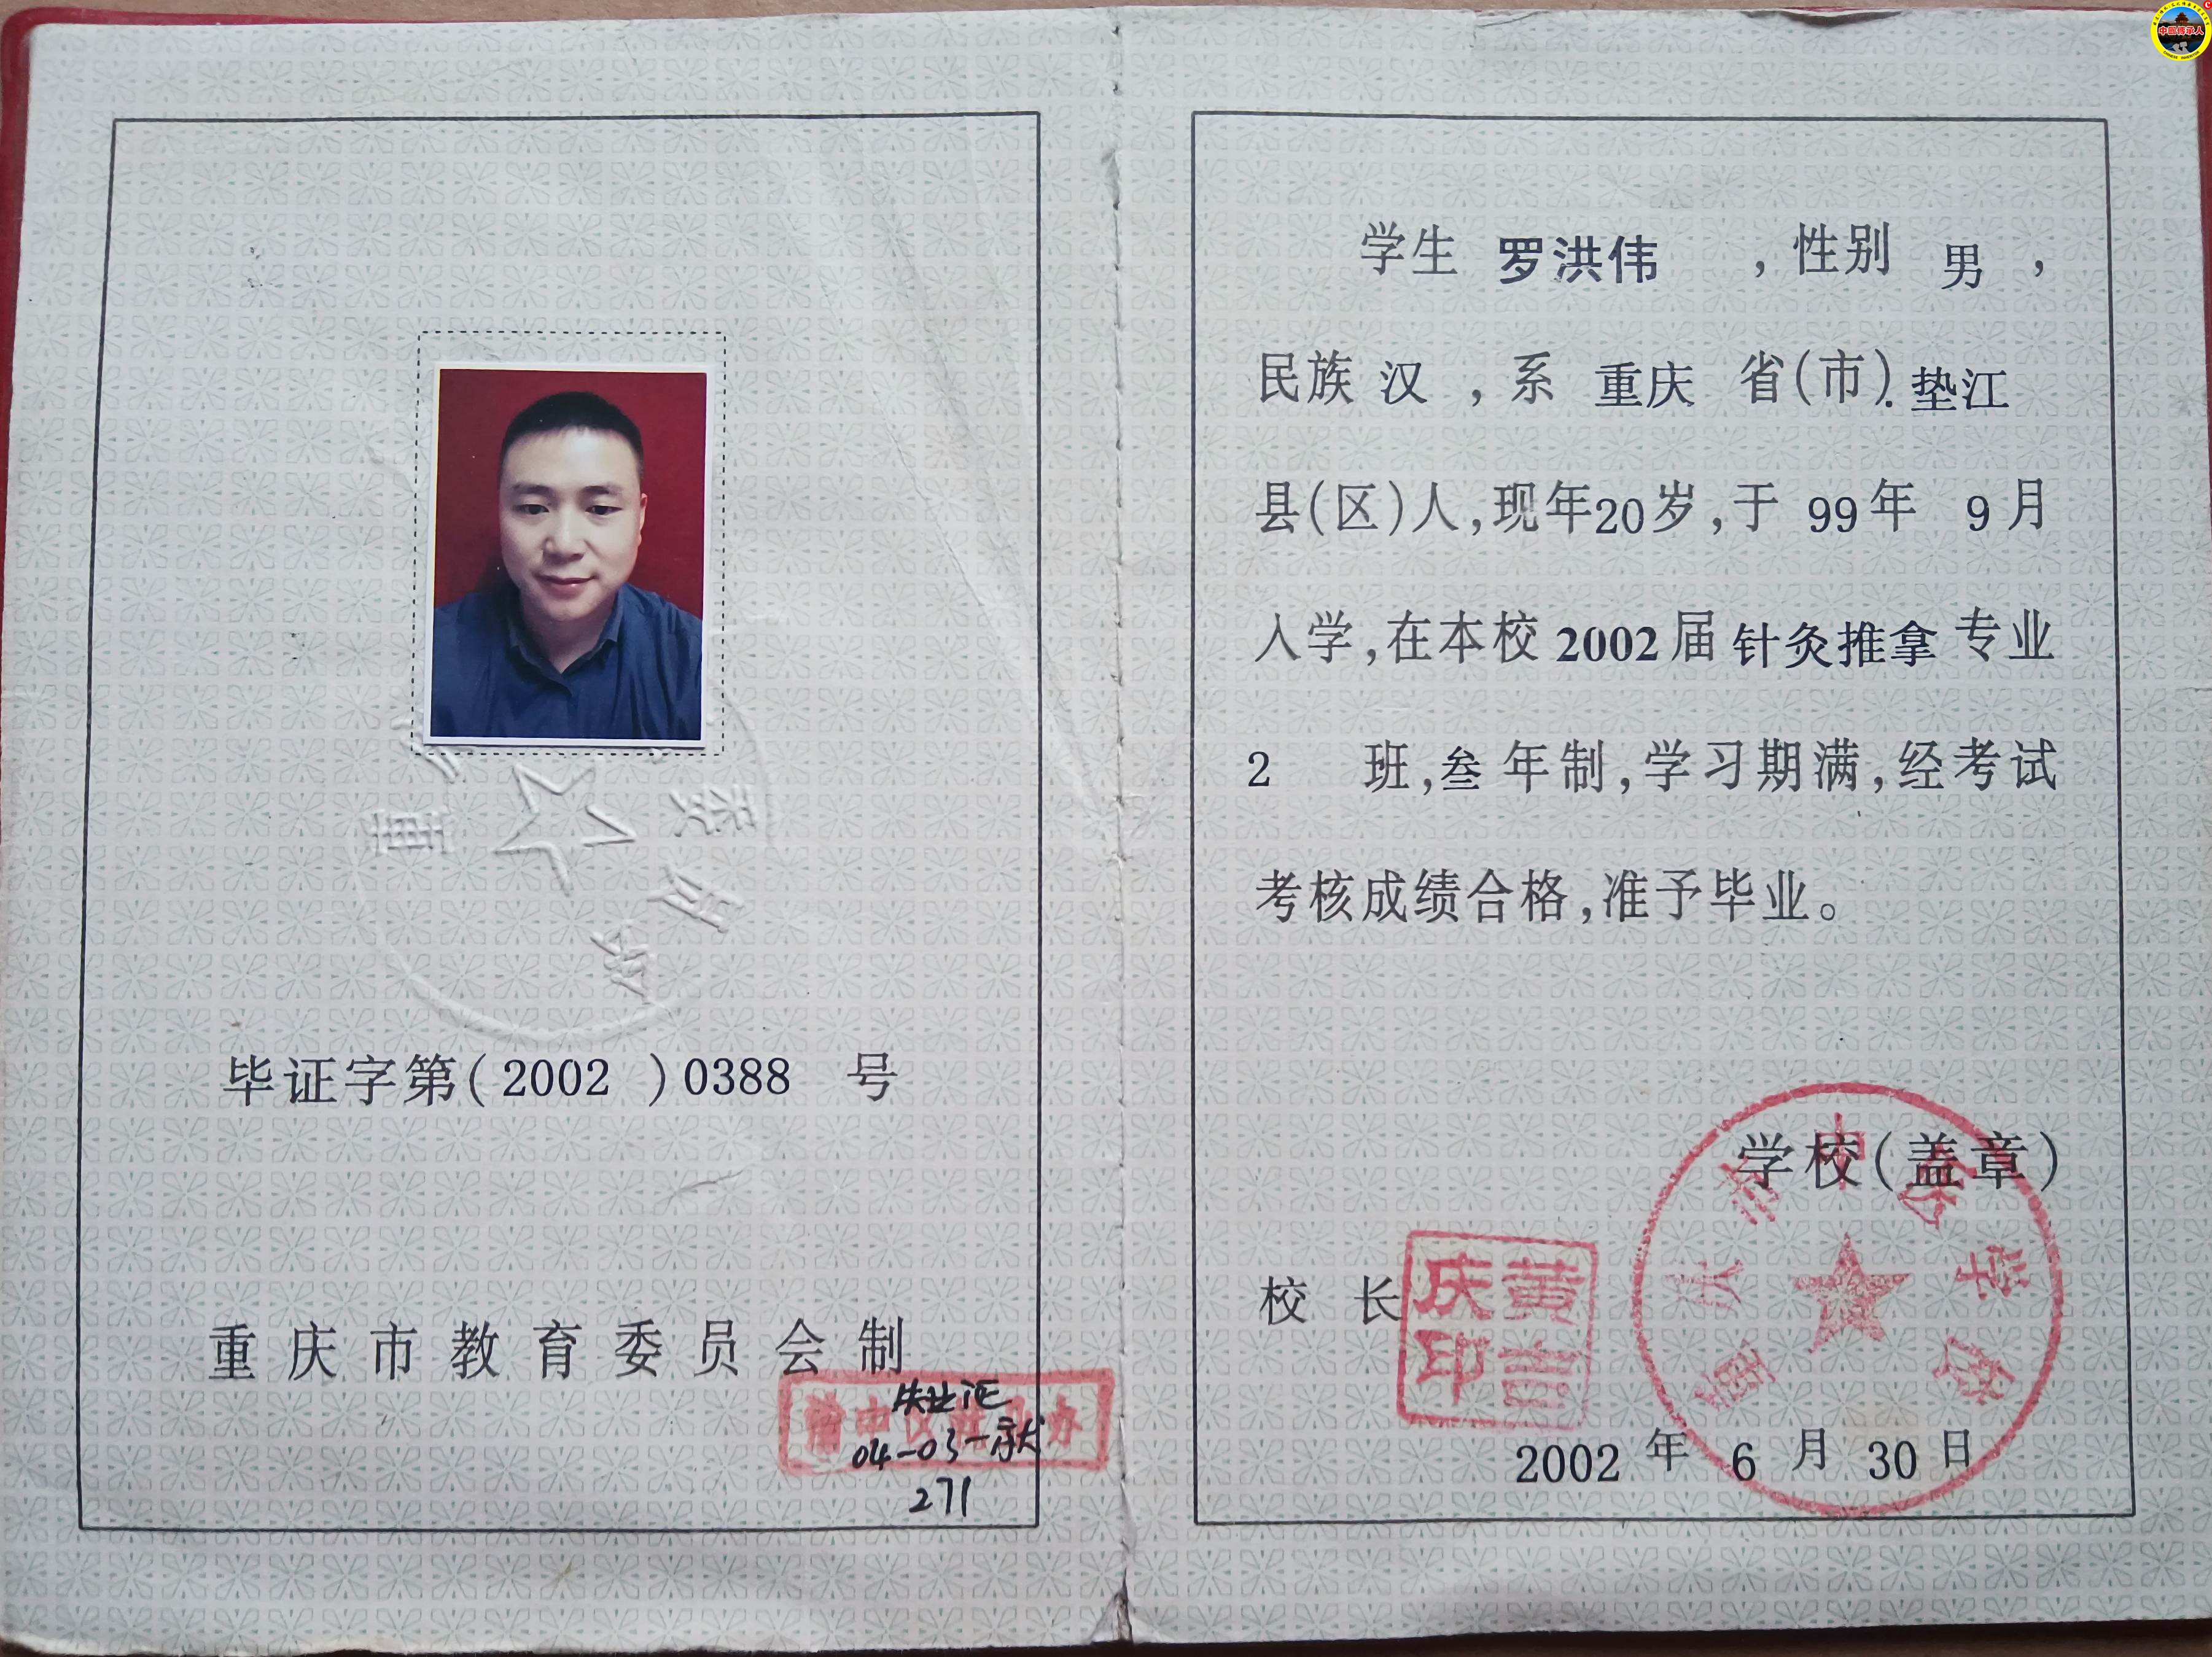 毕证字第(2002)0388 号
重庆市教育委员会制
失业证
04-03-
271
学生 罗洪伟 ,性别 男 ,
民族 汉 ,系 重庆 省(市).垫江
县(区)人,现年20岁,于 99年 9月
入学,在本校2002届针灸推拿专业
2 班,叁年制,学习期满,经考试
考核成绩合格,准予毕业。
学校(盖章)
重庆市中医学校
校 长
黄吉庆印
2002 年 6 月 30 日
中医传承人